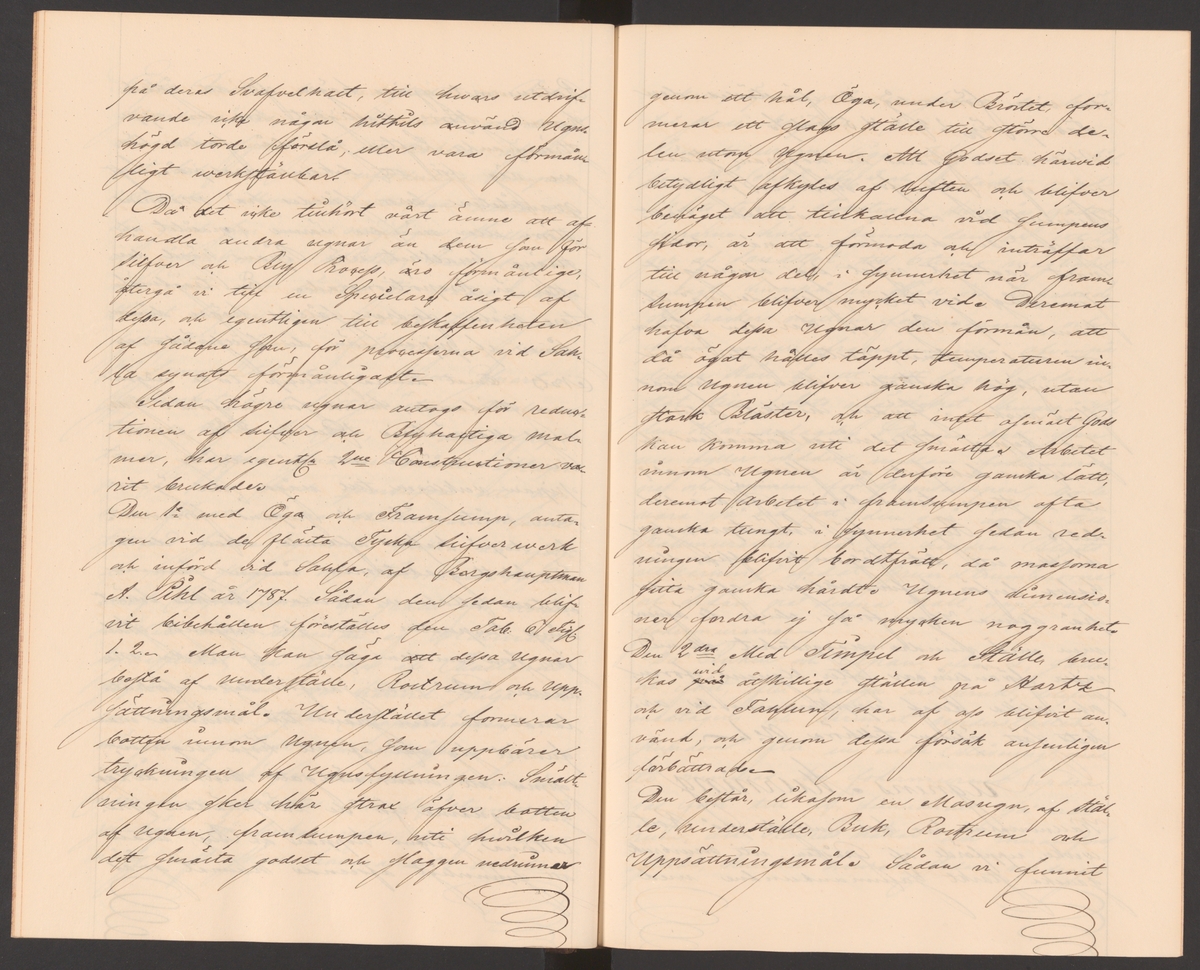 på deras Svafvelhalt, till hwars utdrif-
vande icke någon hittils använd Ugns
högd torde förslå, eller vara förmån-
ligt werkställbar.
Då det icke tillhört vårt ämne att af-
handla andra ugnar än dem som för
Silfver och Bly Process, äro förmånlige,
öfvergå vi till en Speciellare åsigt af
dessa, och egentligen till beskaffenheten
af sådane som, för processerna vid Sah-
la synats förmånligast.
Sedan högre ugnar antogs för reduc-
tionen af silfver och Blyhaftiga mal-
mer, har egentl. 2ne Constructioner va-
rit brukade.
Den 1a med Öga och Framsump, anta-
gen vid de flästa Tyska Silfver werk
och införd vid Sahla, af Bergshauptman
A. Pihl år 1787. Sådan den sedan blif-
vit bibehållen föreställes den Tab. C. Fig.
1. 2. Man kan säga att dessa Ugnar
bestå af Underställe, Rostrum och Upp-
sättningsmål. Understället formerar
botten innom Ugnen, som uppbärer
tryckningen af Ugnsfyllningen. Smält-
ningen sker här strax öfver botten
af ugnen, framsumpen, uti hwilken
det smälta godset och slaggen nedrinner
genom ett hål, Öga, under Bröstet, for-
merar ett slags ställe till större de-
len utom Ugnen. Att Godset härwid
betydligt afkyles af luften och blifver
benäget att tillkanna vid sumpens
sidor, är att förmoda och inträffar
till någon del, i synnerhet när fram
sumpen blifver mycket vid. Deremot
hafva dessa Ugnar den förmån, att
då ögat hålles täppt, temperaturen in-
nom Ugnen blifver ganska hög, utan
stark Bläster, och att intet osmält Gods
kan komma uti det smälta. Arbetet
innom Ugnen är derföre ganska lätt,
deremot arbetet i framsumpen ofta
ganska tungt, i synnerhet sedan red-
ningen blifvit bortfrätt, då massorna
sitta ganska hårdt. Ugnens dimensio-
ner fordra ej så mycken noggranhet.
Den 2dra Med Timpel och Ställe, bru-
kas vid åtskillige ställen på Hartz
och vid Fahlun, har af oss blifvit an-
vänd, och genom dessa försök ansenligen
förbättrad.
Den består, likasom en Masugn, af Stäl-
le, Underställe, Buk, Rostrum och
Uppsättningsmål. Sådan vi funnit